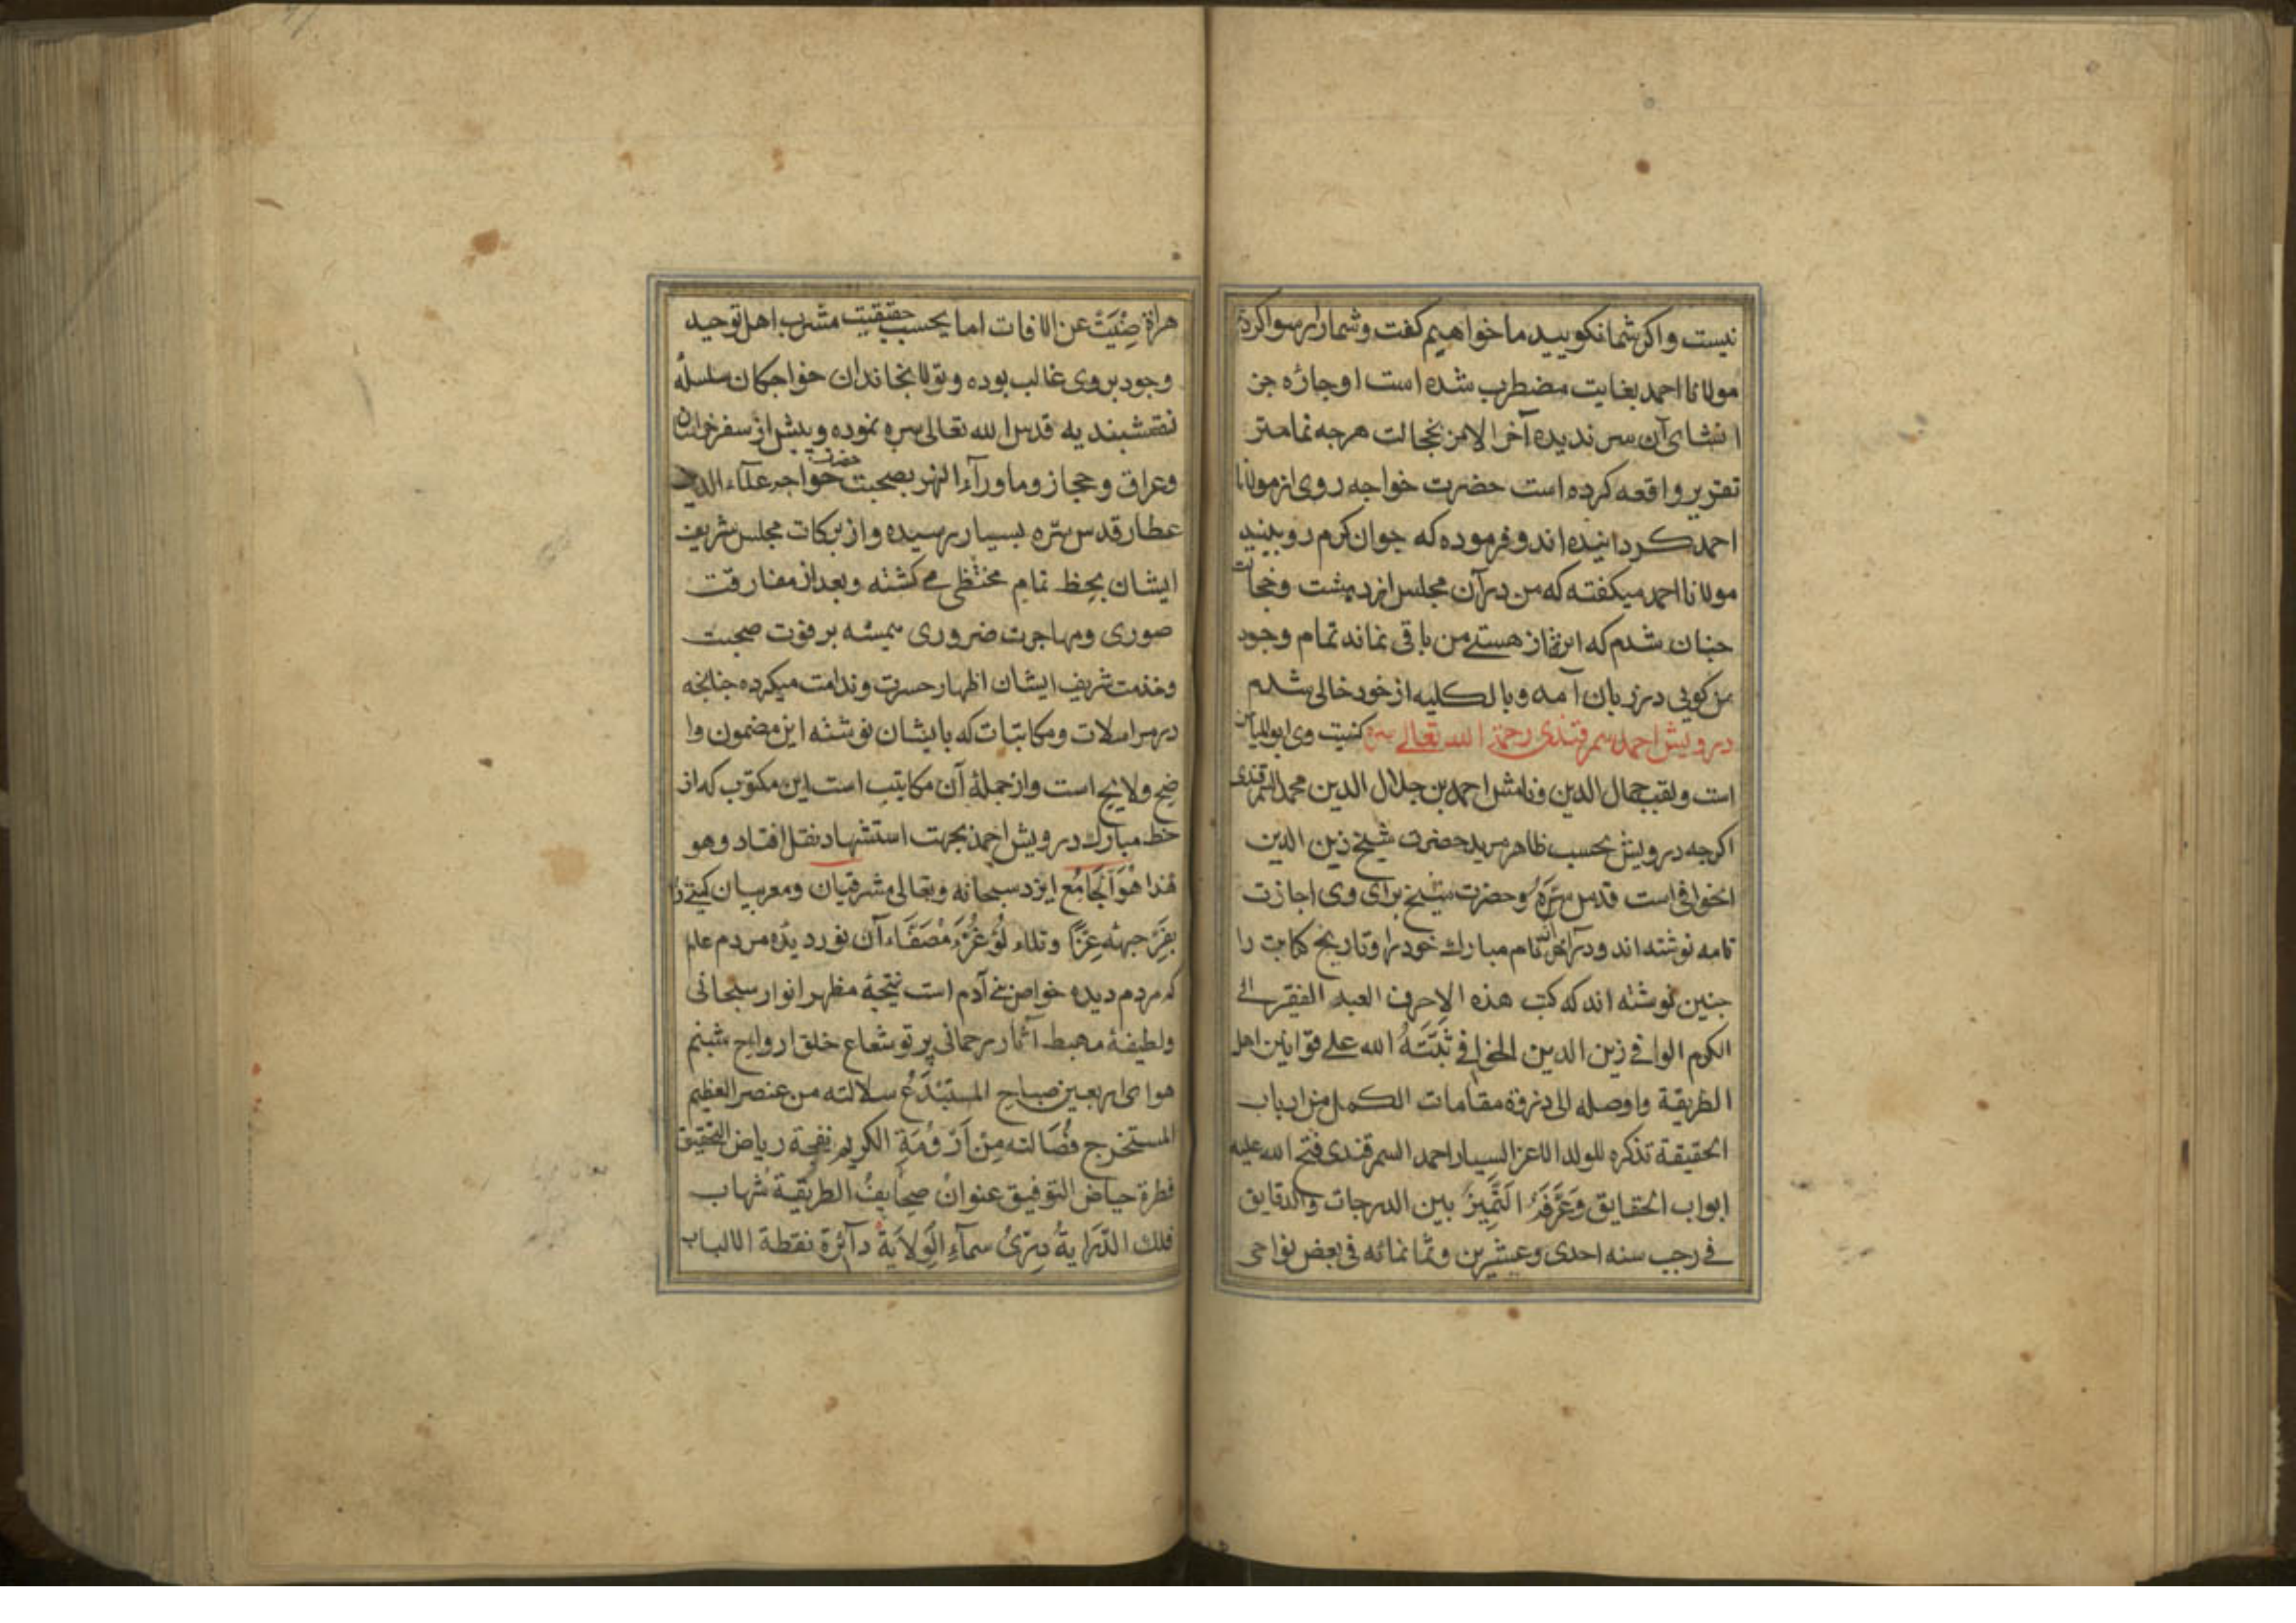 نیست واکر شما نکویید ما خواهیم کفت وشمارا رسوا کرد
مولانا احمد بغایت مضطرب شده است اوجاره جز
انشای آن سر ندیده آخر الامر بخجالت هرجه تمامتر
تقریر واقعه کرده است حضرت خواجه روی از مولانا
احمد کردانیده اند وفرموده که جوان کرم رو ببینید
مولانا احمد میکفته که من در آن مجلس از دهشت وخجالت
جنان شدم که اثر از هستی من باقی نماند تمام وجود
من کویی در زبان آمد وبالکلیه از خود خالی شدم
درویش احمد سمرقندی رحمة الله تعالی سره کنیت وی ابو
است ولقب جمال الدین ونامش احمد بن جلال الدین محمد السمرقندی
اکرجه درویش بحسب ظاهر مرید حضرت شیخ زین الدین
الخوافی است قدس سره وحضرت شیخ برای وی اجازت
نامه نوشته اند ودر آخر آن نام مبارک خود را وتاریخ کتابت را
جنین نوشته اند که کتب هذه الاحرف العبد الفقیر الی
الکرم الوافی زین الدین الخوافی ثبته الله علی قوانین اهل
الطریقة واوصله الی ذروة مقامات الکمل من ارباب
الحقیقة تذکره للولد الاعز السیار احمد السمرقندی فتح الله علیه
ابواب الحقایق وعرفه التمیز بین الدرجات والدقایق
فی رجب سنه احدی وعشرین وثمانمائه فی بعض نواحی
هراة صینت عن الافات اما بحسب حقیقت مشرب اهل توحید
وجود بر وی غالب بوده وتولا بخاندان خواجکان سلسلهٔ
نقشبندیه قدس الله تعالی سره نموده وپیش از سفر خراسان
وعراق وحجاز وماورآء النهر بصحبت حضرت خواجه علآء الدین
عطار قدس سره بسیار رسیده واز برکات مجلس شریف
ایشان بحظ تمام محتظی می کشته وبعد از مفارقت
صوری ومهاجرت ضروری همیشه بر فوت صحبت
وخدمت شریف ایشان اظهار حسرت وندامت میکرده جنانجه
در مراسلات ومکاتبات که بایشان نوشته این مضمون وا
ضح ولایح است واز جملهٔ آن مکاتیب است این مکتوب که از
خط مبارک درویش احمد بجهت استشهاد نقل افتاد وهو
هذا هو الجامع ایزد سبحانه وتعالی مشرقیان ومغربیان کیتی را
بغرّ جبهه غرّا وتلاء لؤ غرّهٔ مصفّاء آن نور دیدهٔ مردم عالم
که مردم دیده خواص بنی آدم است نتیجهٔ مظهر انوار سبحانی
ولطیفهٔ مهبط آثار رحمانی پرتو شعاع خلق ارواح شبنم
هوای اربعین صباح المستبدع سلالته من عنصر العظیم
المستخرج فضالته من ارومة الکریم نفحة ریاض التحقیق
قطرة حیاض التوفیق عنوان صحایف الطریقة شهاب
فلک الدّرایة درّی سمآء الولایة دآئرة نقطة الالباب